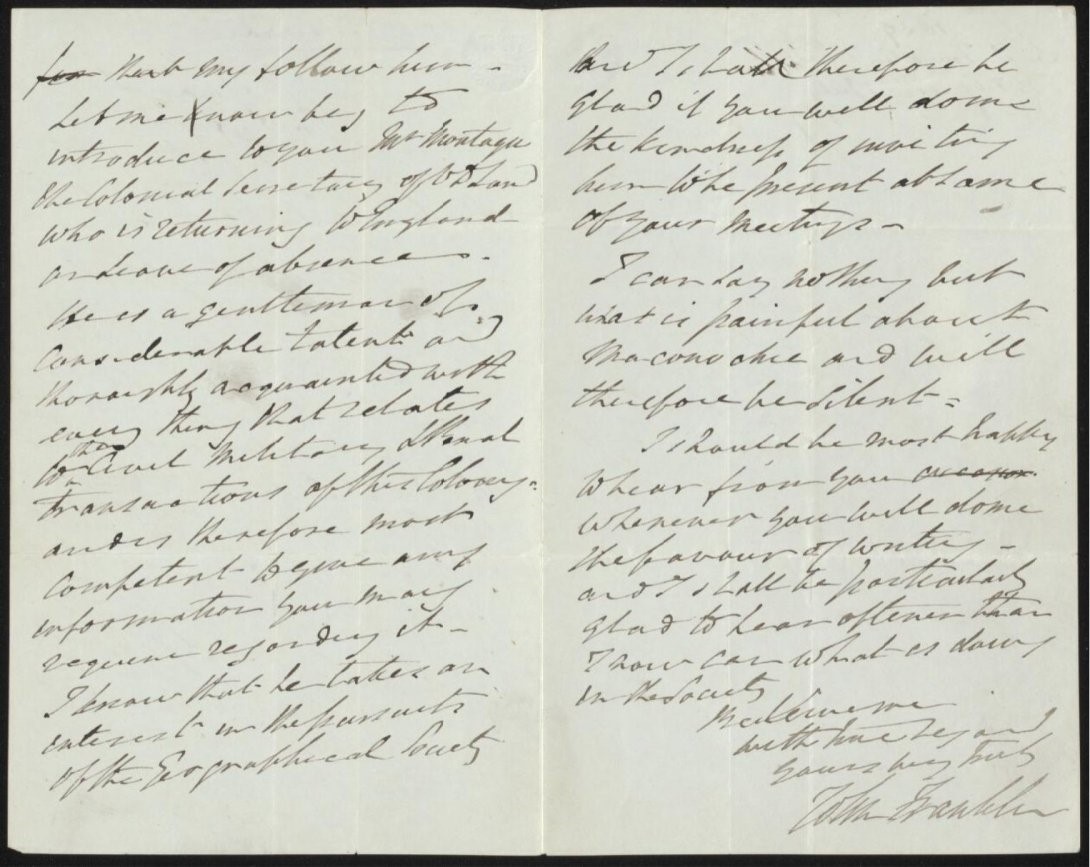 that may follow him -
Let me now beg to
introduce to you Mr Montagu
the Colonial Secretary of V D Land
who is returning to England
on Leave of absence.
He is a gentleman of
Considerable talent and
thoroughly acquainted with
every thing that relates
to the Civil Military & Penal
transactions of this Colony =
and is therefore most
Competent to give any
information you may
require regarding it -
I know that he takes an
interest in the pursuits
of the Geographical Society
and I shall therefore be
glad if you will do me
the kindness of inviting
him to be present at some
of your meetings -
I can say nothing but
what is painful about
Maconochie and will
therefore be silent =
I should be most happy
to hear from you
whenever you will do me
the favour of writing -
and I shall be particularly
glad to hear oftener than
I now can what is doing
in the Society
Believe me
with true regard
Yours very truly
John Franklin